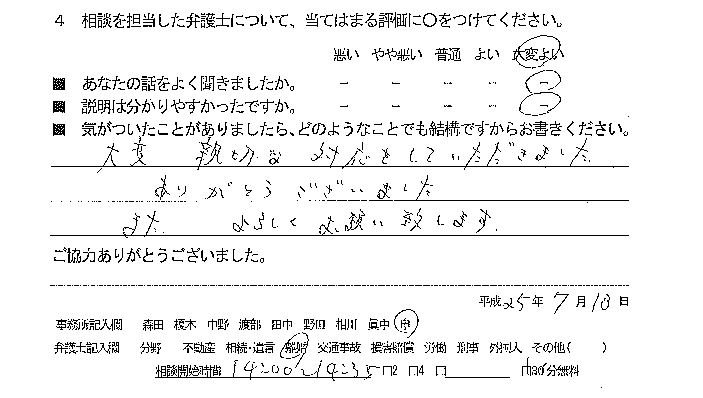 4 相談を担当した弁護士について、当てはまる評価に〇をつけてください。
悪い やや悪い 普通 よい 大変よい
あなたの話をよく聞きましたか。 － － － － －
説明は分かりやすかったですか。 － － － － －
気がついたことがありましたら、どのようなことでも結構ですからお書きください。
大変 親切な対応をしていただきました
ありがとうございました
また よろしくお願い致します.
ご協力ありがとうございました。
平成25年7月18日
事務所記入欄 森田 榎木 中野 渡部 田中 野田 相川 眞中
弁護士記入欄 分野 不動産 相続・遺言 離婚 交通事故 損害賠償 労働 刑事 外国人 その他( )
相談開始時間 14:00~14:35 □2 □4 □ □30分無料